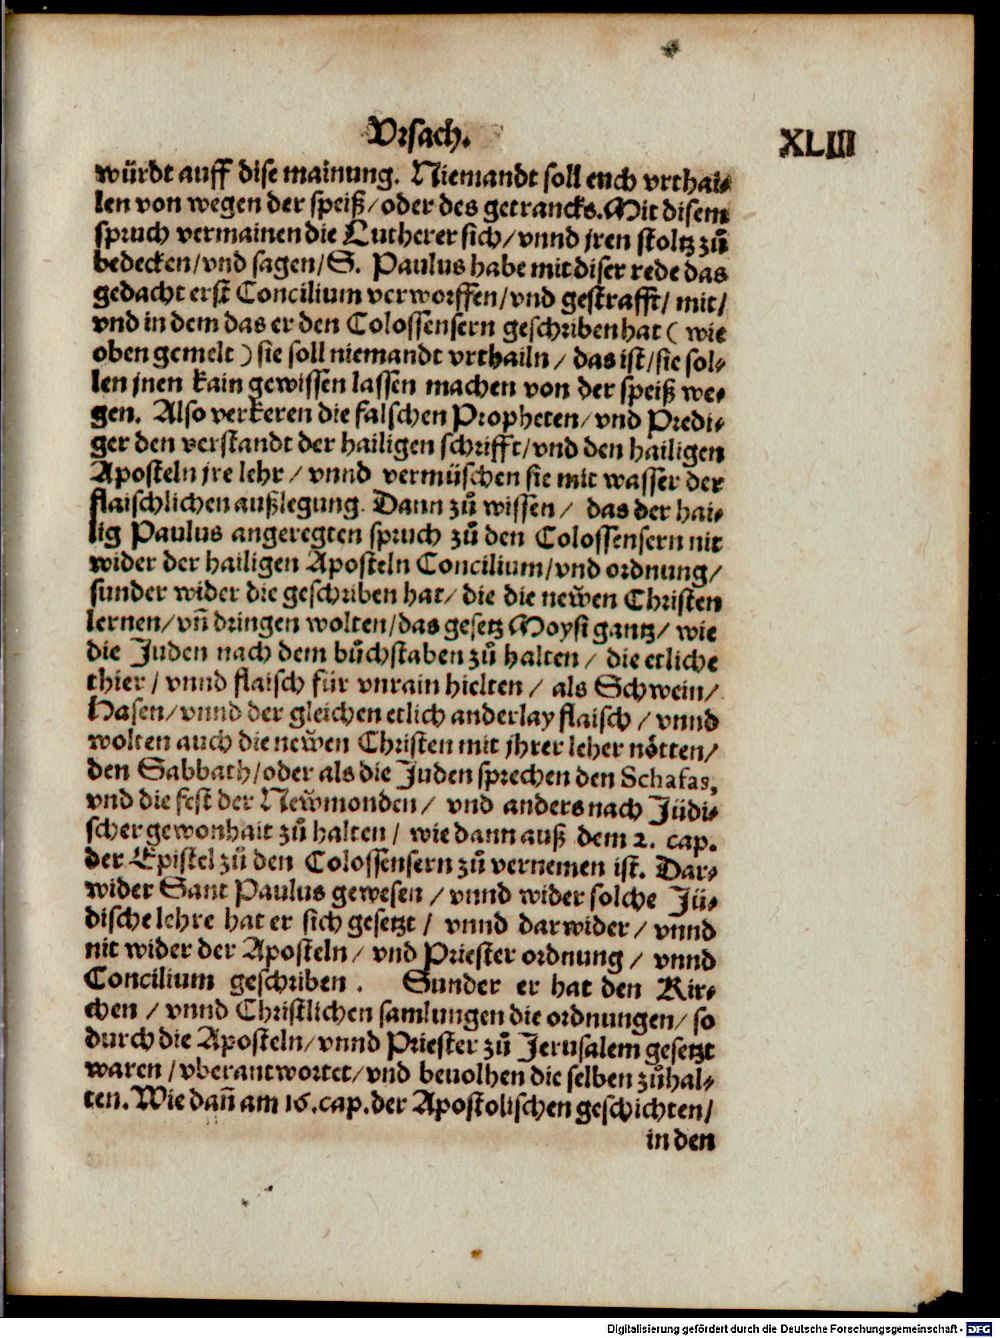 Vrsach.
XLIII
würdt auff dise mainung. Niemandt soll euch vrthai⸗
len von wegen der speiß/oder des getrancks. Mit disem
spruch vermainen die Lutherer sich/vnnd jren stoltz zů
bedecken/vnd sagen/S. Paulus habe mit diser rede das
gedacht erst Concilium verworffen/vnd gestrafft/mit/
vnd in dem das er den Colossensern geschriben hat (wie
oben gemelt) sie soll niemandt vrthailn/das ist/sie sol⸗
len jnen kain gewissen lassen machen von der speiß we⸗
gen. Also verkeren die falschen Propheten/vnd Predi⸗
ger den verstandt der hailigen schrifft/vnd den hailigen
Aposteln jre lehr/vnnd vermüschen sie mit wasser der
flaischlichen außlegung. Dann zů wissen/das der hai⸗
lig Paulus angeregten spruch zů den Colossensern nit
wider der hailigen Aposteln Concilium/vnd ordnung/
sunder wider die geschriben hat/die die newen Christen
lernen/vñ dringen wolten/das gesetz Moysi gantz/wie
die Juden nach dem bůchstaben zů halten/die etliche
thier/vnnd flaisch für vnrain hielten/als Schwein/
Hasen/vnnd der gleichen etlich anderlay flaisch/vnnd
wolten auch die newen Christen mit jhrer leher nötten/
den Sabbath/oder als die Juden sprechen den Schafas,
vnd die fest der Newmonden/vnd anders nach Jüdi⸗
scher gewonhait zů halten/wie dann auß dem 2. cap.
der Epistel zů den Colossensern zů vernemen ist. Dar⸗
wider Sant Paulus gewesen/vnnd wider solche Jü⸗
dische lehre hat er sich gesetzt/vnnd darwider/vnnd
nit wider der Aposteln/vnd Priester ordnung/vnnd
Concilium geschriben. Sunder er hat den Kir⸗
chen/vnnd Christlichen samlungen die ordnungen/so
durch die Aposteln/vnnd Priester zů Jerusalem gesetzt
waren/vberantwortet/vnd beuolhen die selben zůhal⸗
ten. Wie dañ am 16. cap. der Apostolischen geschichten/
in den
Digitalisierung gefördert durch die Deutsche Forschungsgemeinschaft - DFG